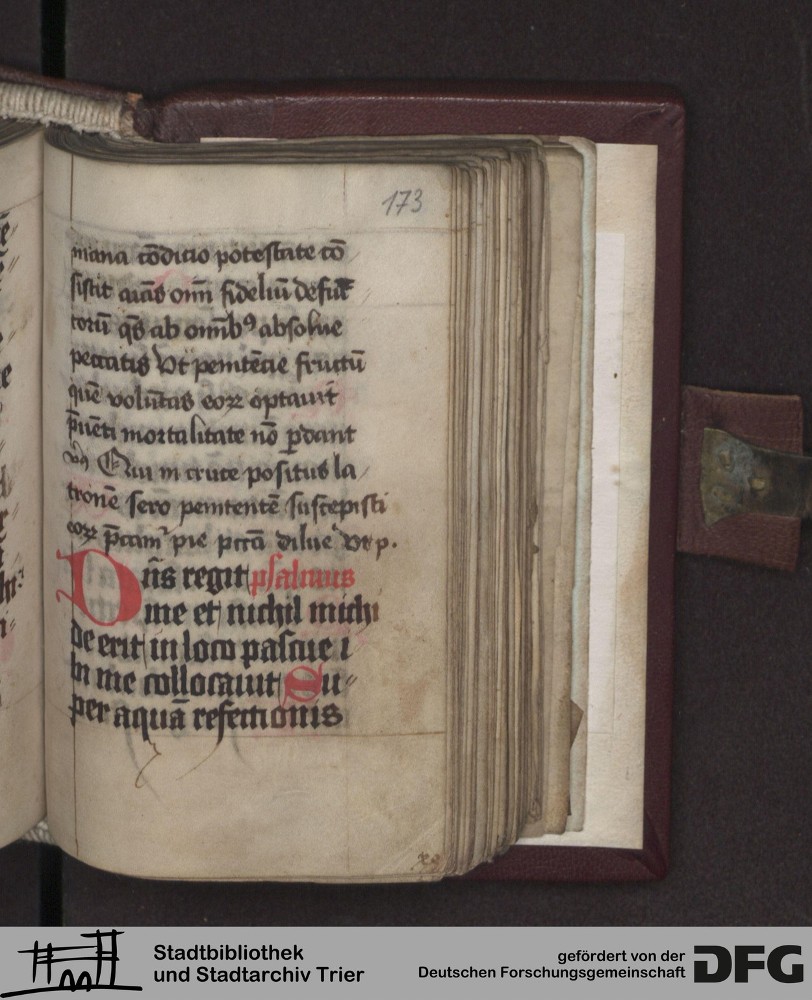 173
mana cōditio potestate cō
sistit aīas om̄i fideliū defūc
torū qs̄ ab om̄ibꝫ absolue
peccatis Vt penitēcie fructū
quē volūtas eoꝝ optauit
p̄uēti mortalitate nō ꝑdant
Qui in cruce positus la
tronē sero penitentē suscepisti
eoꝝ p̄cam² pie pctā dilue vt p.
Dn̄s regit psalmus
me et nichil michi
de erit in loco pascue i
bi me collocauit Su
per aquā refectionis
Stadtbibliothek
und Stadtarchiv Trier
gefördert von der
Deutschen Forschungsgemeinschaft
DFG